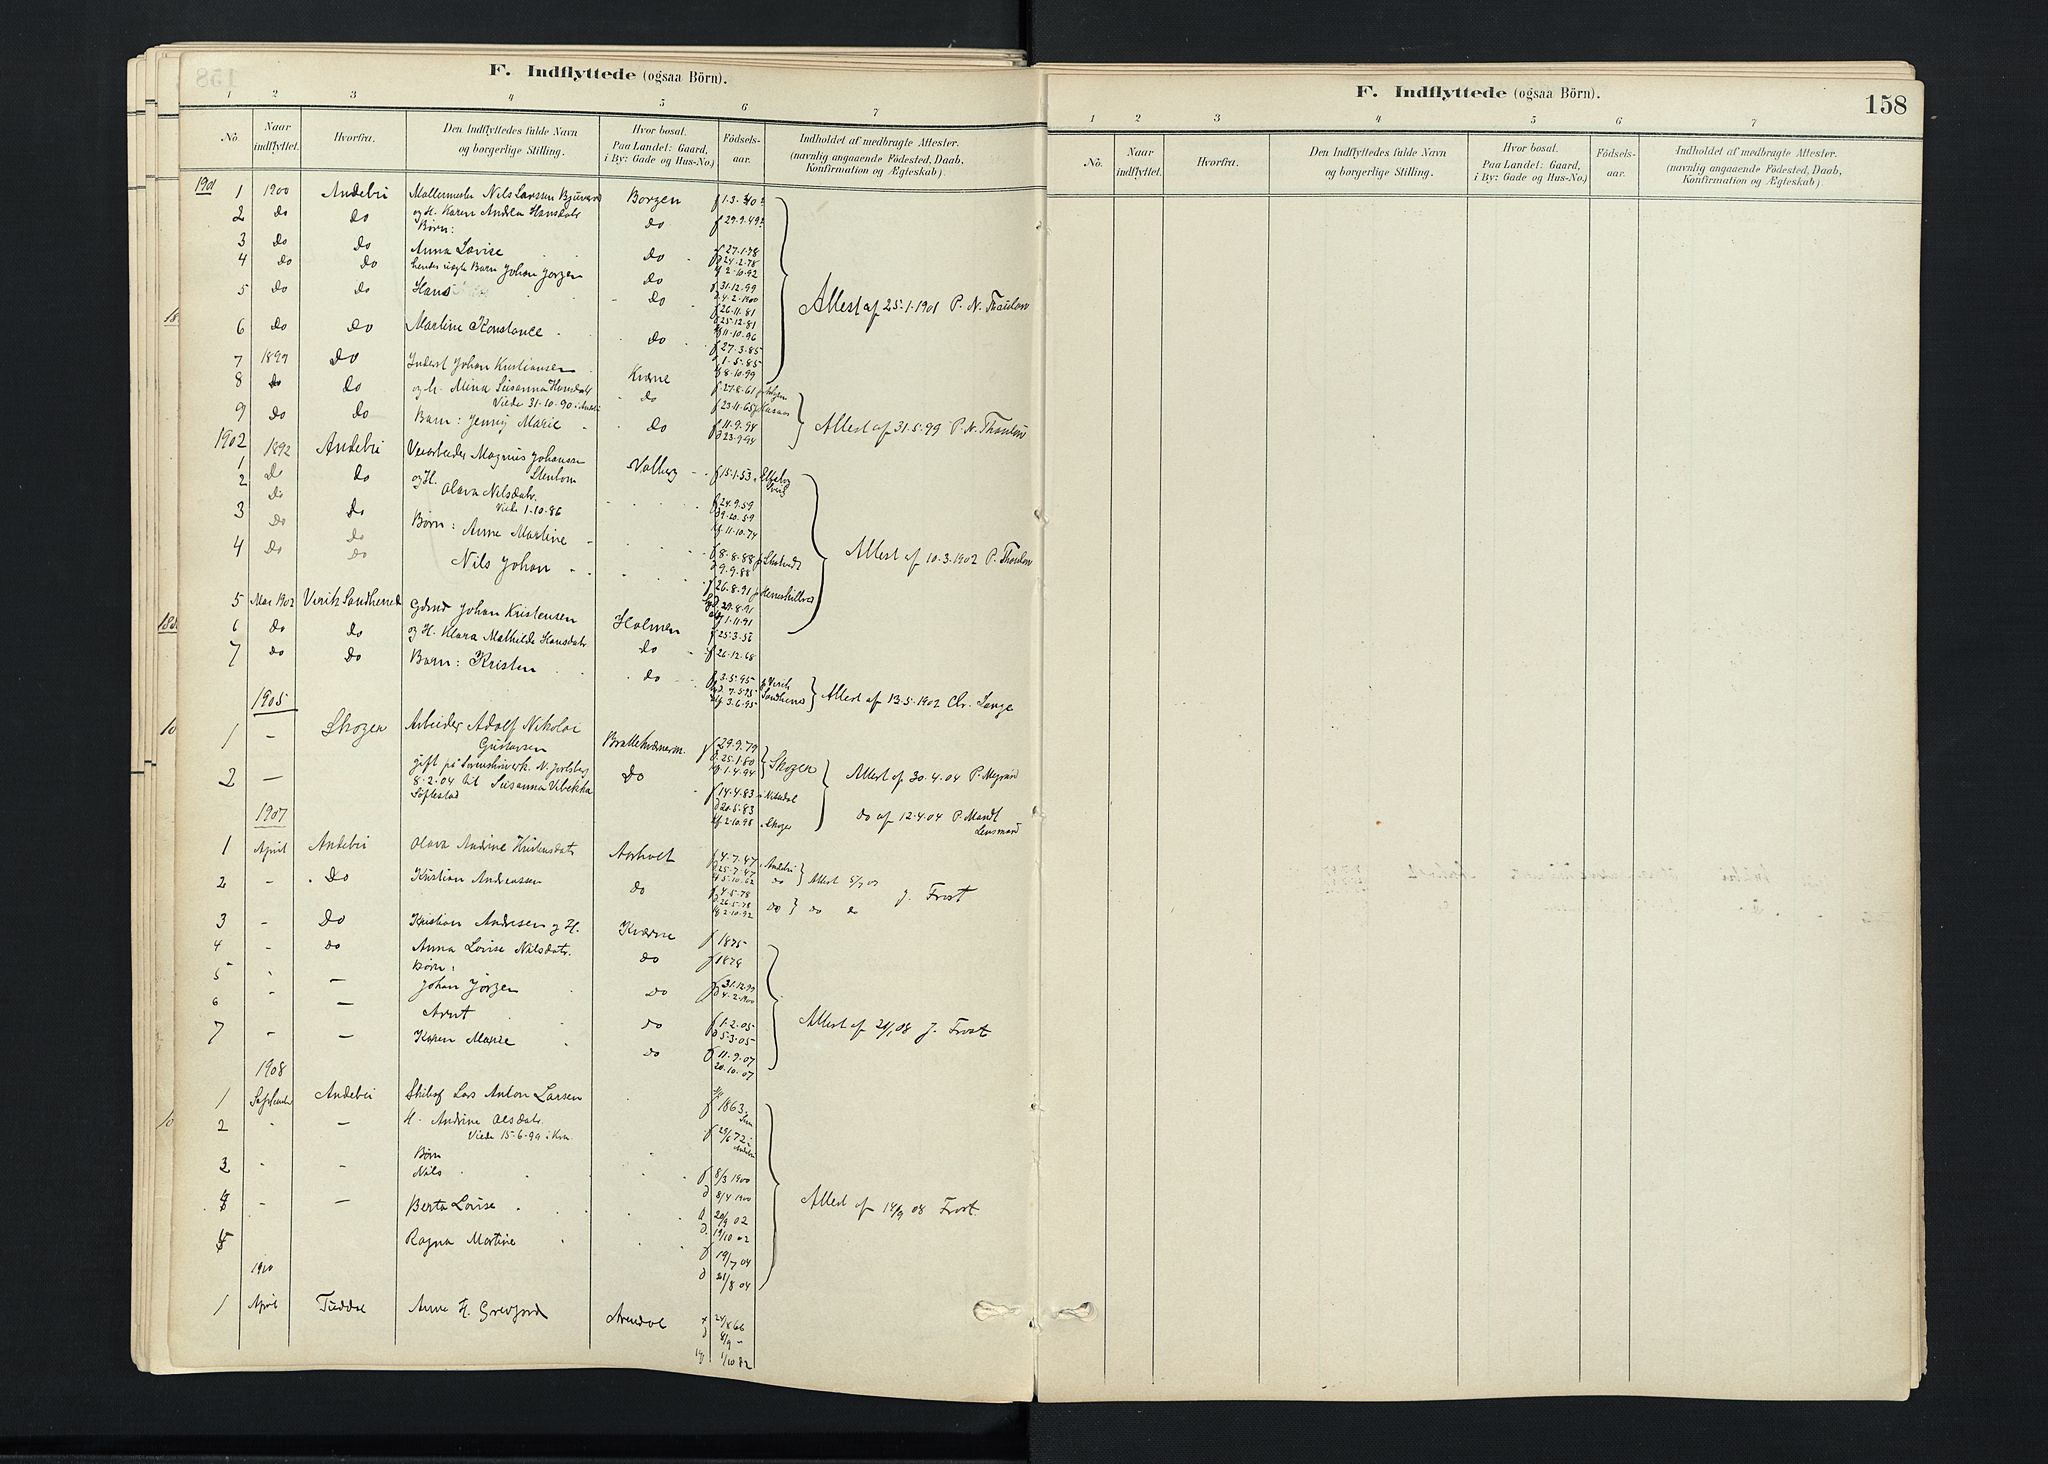 F. Indflyttede (ogsaa Börn).
1 2 3 4 5 6 7
No. Naar indflyttet. Hvorfra. Den Indflyttedes fulde Navn og borgerlige Stilling. Hvor bosat. Paa Landet: Gaard, i By: Gade og Hus-No.) Födsels-aar. Indholdet af medbragte Attester. (navnlig angaaende Födested, Daab, Konfirmation og Ægteskab)
1901
1 1900 Andebu Møllermester Nils Larssen Borgen f 1.3.
2 do do og H. Karen Andrea Hansdatr do f 29.9.49
Børn:
3 do do Anna Lovise do f 27.1.78
d 24.2.78
kf 2.10.92
4 do do hendes uægte Barn Johan Jørgen do f 31.12.99
d 4.2.1900
5 do do Hans do f 26.11.81
d 25.12.81
kf 11.10.96
6 do do Martine Konstance do f 27.3.85
d 1.5.85
kf 8.10.99
Attest af 25.1.1901 P. N. Thaulow
7 1899 do Inderst Johan Kristiansen Kværne f 27.8.61
8 do do og h. Mina Susanna Hansdatr do f 23.11.65
Viede 31-10-90 i
9 do do Barn: Jenny Marie do f 11.9.94
d 23.9.94
Attest af 31.5.99 P. N. Thaulow
1902
1 1892 Andebu Veiarbeider Magnus Johansen Stenbom Valberg f 15.1.53
2 do do og H. Olava Nilsdatr. f 24.9.59
do Viede 1-10-86 d 9.10.59
kf 11.10.74
3 do do Børn: Anne Martine f 8.8.88
d 9.9.88
4 do do Nils Johan f 26.8.91
29.8.91
1.11.91
Attest af 10.3.1902 P. Thaulow
5 Mai 1902 Virik Sandherred Gbrd Johan Kristensen Holmen f 25.3.56
6 do do og H. Klara Mathilde Hansdatr do f 26.12.68
7 do do Barn: Kristen do f 3.5.95
7.5.95
3.6.95
Sandherred
Attest af 13.5.1902 Chr. Lange
1905
1 - Skoger Arbeider Adolf Nikolai Gustavsen f 29.9.79
d 25.1.80
kf 1.4.94
Skoger
Attest af 30.4.04 P.
2 - gift på
8-2-04 til Susanna Vibekka do f 14.4.83
Søftestad d 20.5.83
kf 2.10.98 Skoger
do af 12.4.04 P. Mandt
Lensmand
1907
1 April Andebu Olava Andrine Kristensdatr Aasholt f 4.7.47 Andebu
d 25.7.47
kf 5.10.62 do
Attest
2 - do Kristian Andreassen do f 4.5.78
d 26.5.78
kf 2.10.92
do do do J. Frost
3 - do Kristian Andresen og H. Kværne f 1875
4 - do Anna Lovise Nilsdatr. do f 1878
Børn:
5 - Johan Jørgen do f 31.12.99
d 4.2.1900
6 - Arnt do f 1.2.05
d 5.3.05
7 - - Karen Marie do f 11.9.07
20.10.07
Attest af J. Frost
1908
1 September Andebu Lars Anton Larsen f 1863
2 - H. Andrine Olsdatr. f 29/6 72 i
Viede 15-6-99 i Andebu
Børn
3 - - Nils f 8/3 1900
d 8/4 1900
4 - - Berta Lovise f 20/9 02
d. 19/10 02
5 Ragna Martine f 19/7 04
d 21/8 04
Attest af 14/9 08 Frost.
1910
1 April Tuddal Anne H. Grevjord Arendal
1/10 82
F. Indflyttede (ogsaa Börn).
158
1 2 3 4 5 6 7
No. Naar indflyttet. Hvorfra. Den Indflyttedes fulde Navn og borgerlige Stilling. Hvor bosat. Paa Landet: Gaard, i By: Gade og Hus-No.) Födsels-aar. Indholdet af medbragte Attester. (navnlig angaaende Födested, Daab, Konfirmation og Ægteskab)